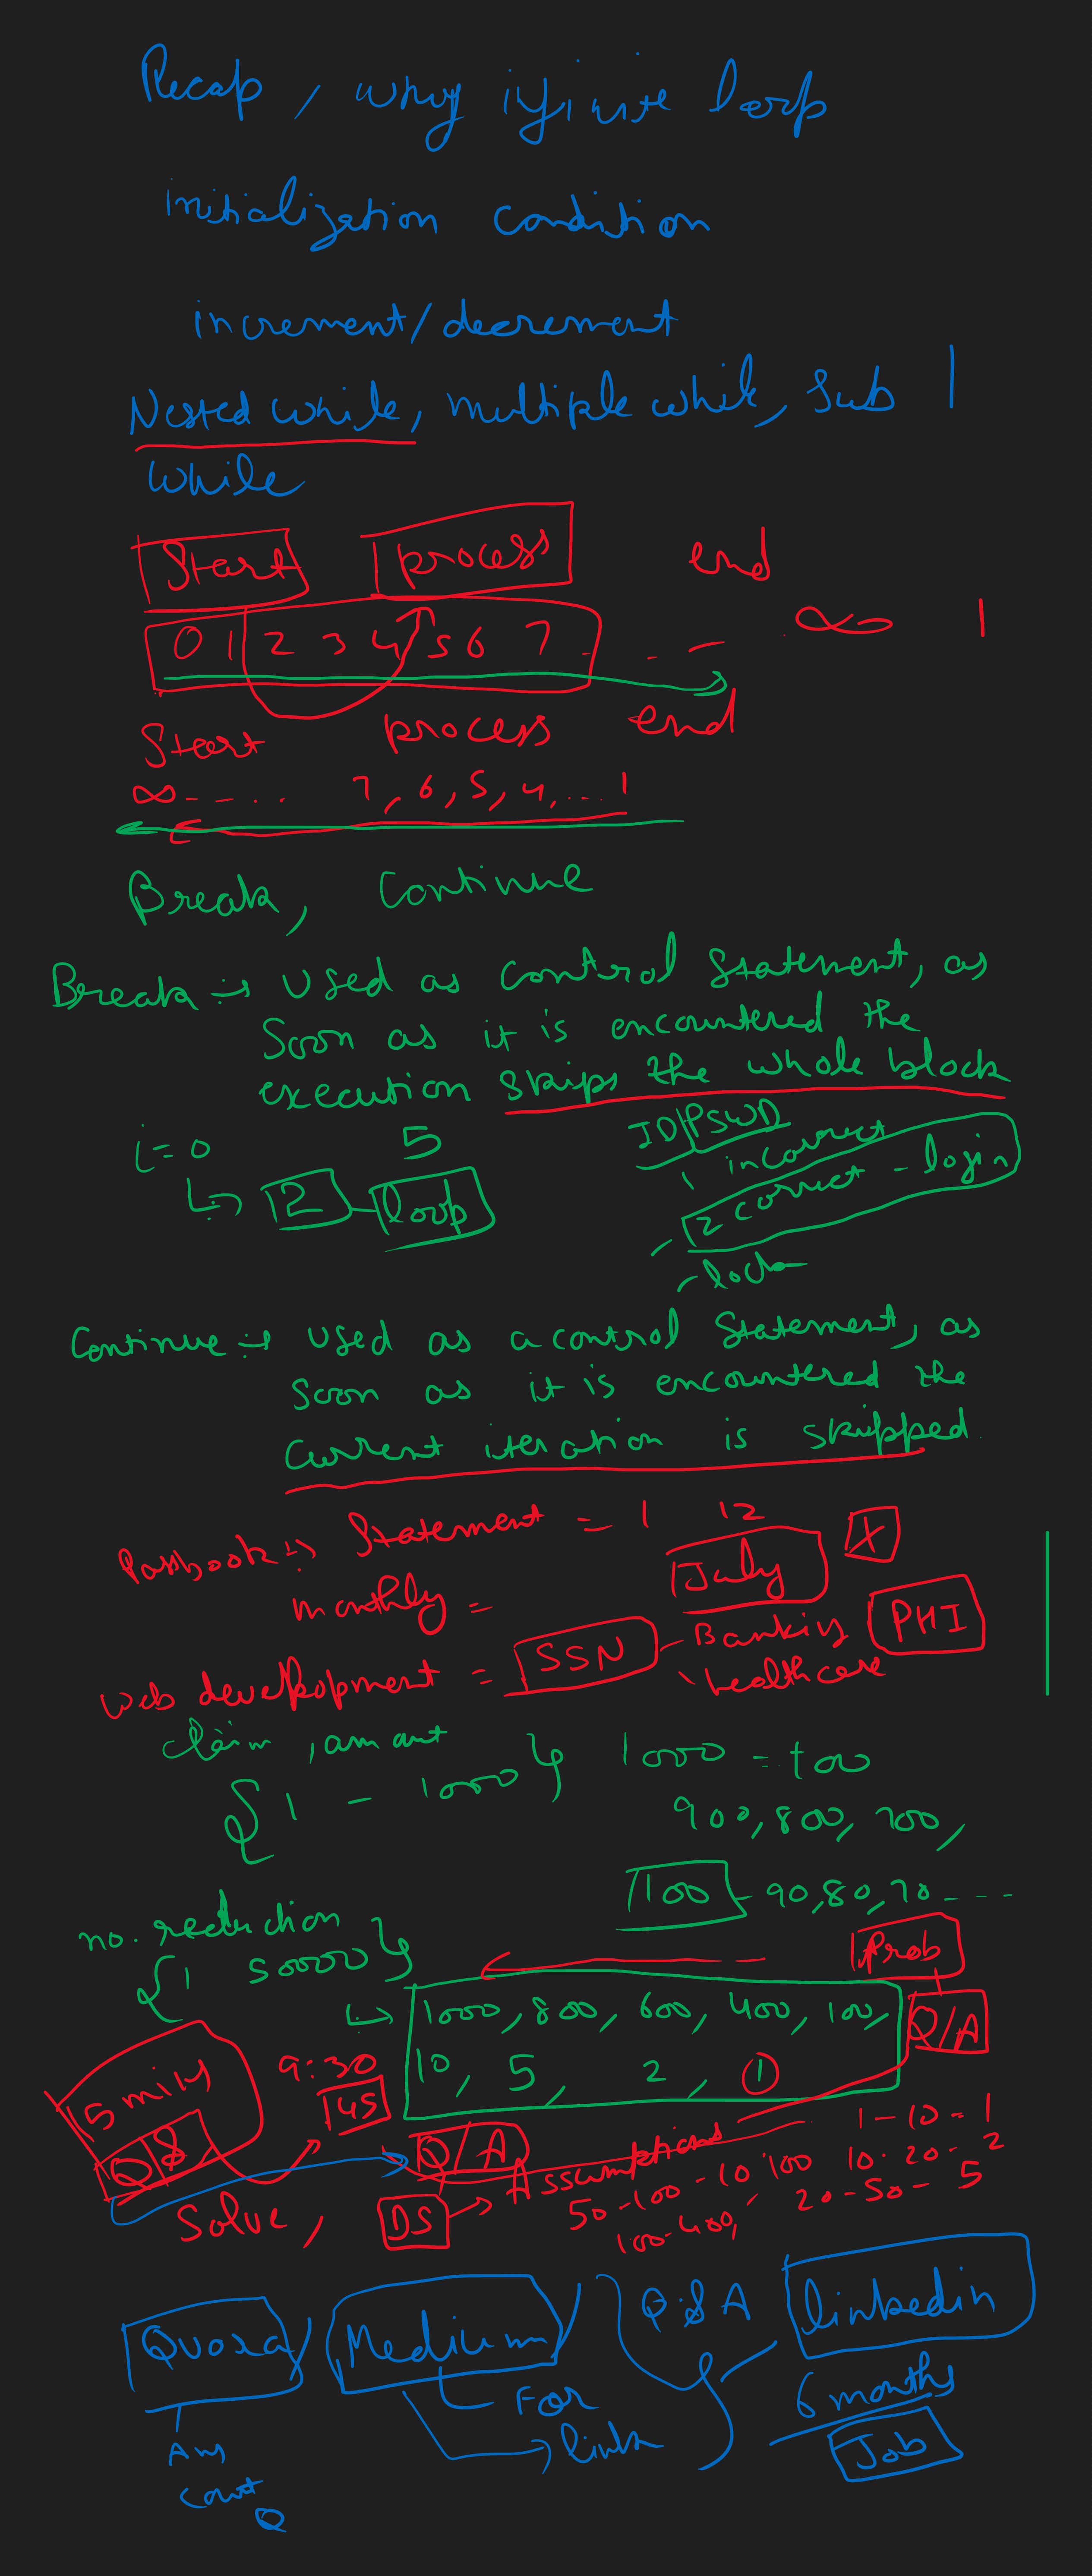 Recap, why infinite loop
initialization condition
increment/decrement
Nested while, multiple while, Sub
while
Start process end
0 1 2 3 4 5 6 7 . . - ∞ 1
Start process end
∞ - - . . . 7, 6, 5, 4, ... 1
Break, Continue
Break :→ Used as control statement, as
soon as it is encountered the
execution skips the whole block
i = 0 5 ID/PSWD
1 incorrect
↳ 2 - loop 2 correct - login
- lock
Continue :→ Used as a control statement, as
soon as it is encountered the
current iteration is skipped.
Passbook :→ Statement = 1 12 X
monthly = July
web development = SSN - Banking PHI
healthcare
claim, amount
{1 - 1000} 1000 = 100
900, 800, 700,
100 - 90, 80, 70 - - - -
no. reduction
{1 50000} Prob
↳ 1000, 800, 600, 400, 100, Q/A
10, 5, 2, 1
5 mins 9:30
Q 8 145 Q/A
Solve, DS → Assumptions
1 - 10 = 1
10 - 20 - 2
20 - 50 - 5
50 - 100 - 10
100 - 400,
100
Quora / Medium / Q & A linkedin
For 6 months
link Job
Ans
count
Q